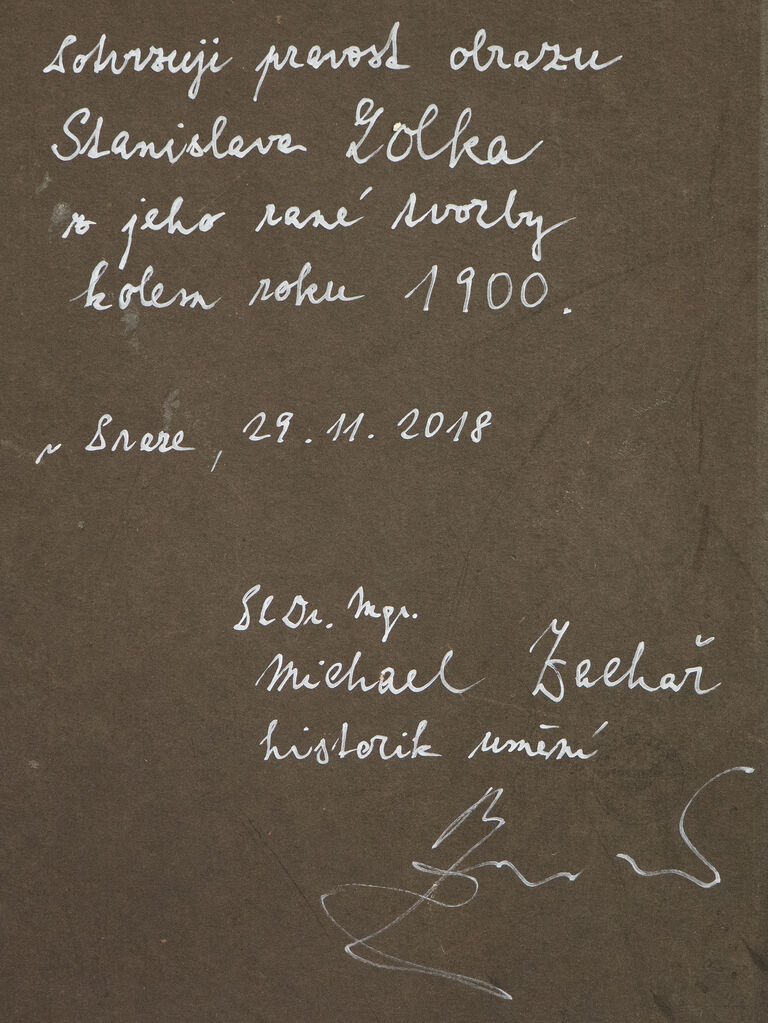 Potvrzuji pravost obrazu
Stanislava Lolka
z jeho rané tvorby
kolem roku 1900.
v Praze, 29.11.2018
PhDr. Mgr.
Michael Zachař
historik umění